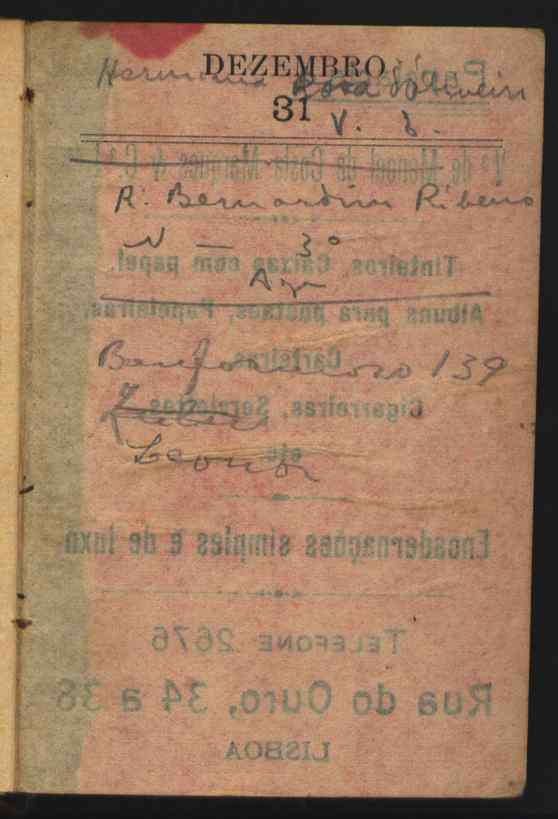 DEZEMBRO
Papelaria
Herminia Rosa d'Oliveira
31
V. 3.
V.ª de Manoel da Costa Marques & C.ª
R. Bernardim Ribeiro
N — 3º
Tinteiros, Caixas com papel,
Albuns para postaes, Papeleiras,
Carteiras,
Benformoso 139
Cigarreiras, Serviettes,
etc
Leonor
Encadernações simples e de luxo
TELEFONE 2676
Rua do Ouro, 34 a 38
LISBOA